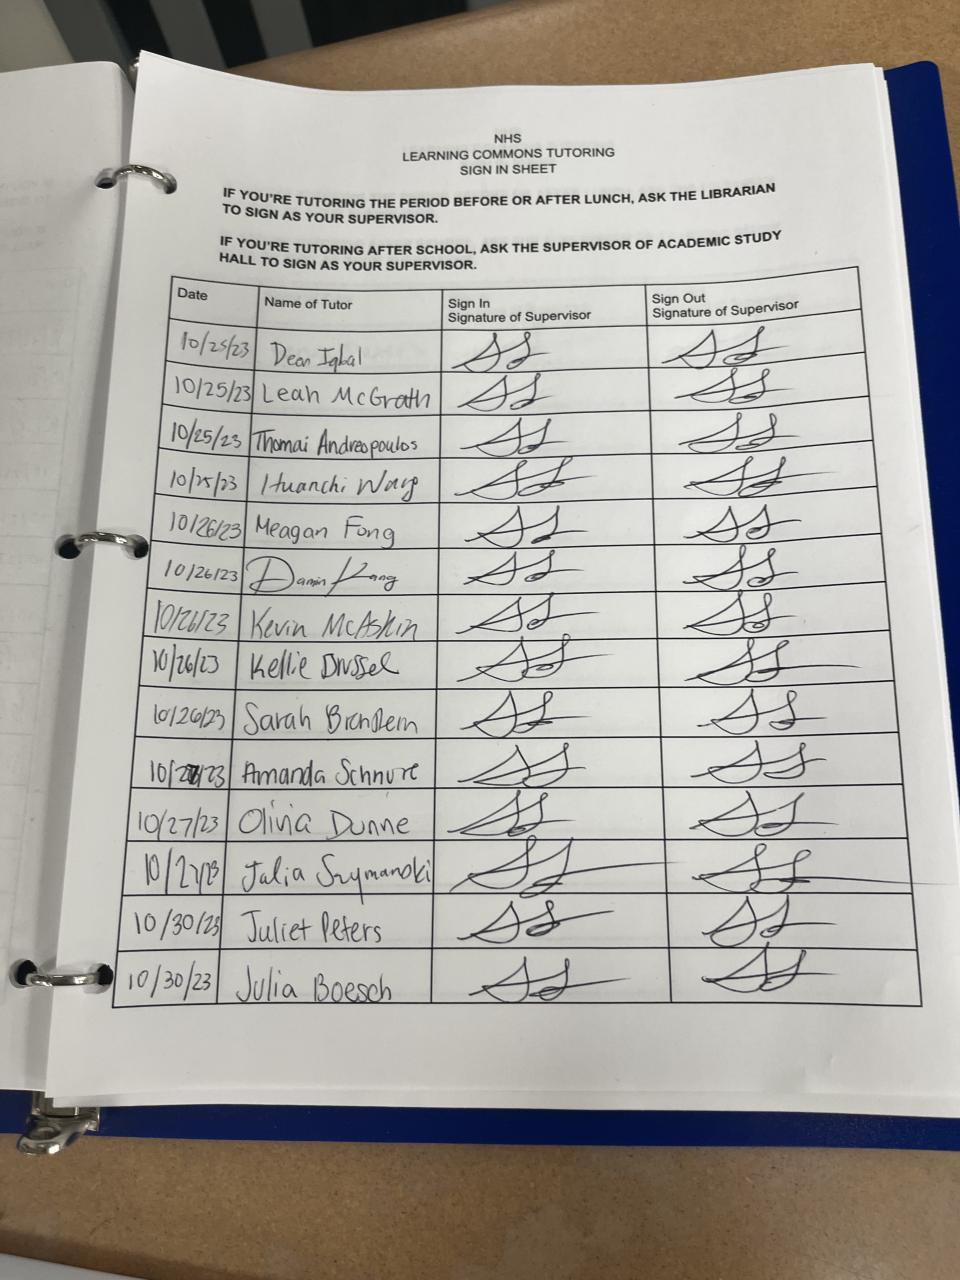 NHS
LEARNING COMMONS TUTORING
SIGN IN SHEET
IF YOU'RE TUTORING THE PERIOD BEFORE OR AFTER LUNCH, ASK THE LIBRARIAN
TO SIGN AS YOUR SUPERVISOR.
IF YOU'RE TUTORING AFTER SCHOOL, ASK THE SUPERVISOR OF ACADEMIC STUDY
HALL TO SIGN AS YOUR SUPERVISOR.
Date Name of Tutor Sign In Signature of Supervisor Sign Out Signature of Supervisor
10/25/23 Dean Iqbal
10/25/23 Leah McGrath
10/25/23 Thomai Andreopoulos
10/25/23 Huanchi Wang
10/26/23 Meagan Fong
10/26/23 Damin Kang
10/26/23 Kevin McAskin
10/26/23 Kellie Drussel
10/26/23 Sarah
10/27/23 Amanda Schnure
10/27/23 Olivia Dunne
10/27/23 Julia Szymanski
10/30/23 Juliet Peters
10/30/23 Julia Boesch